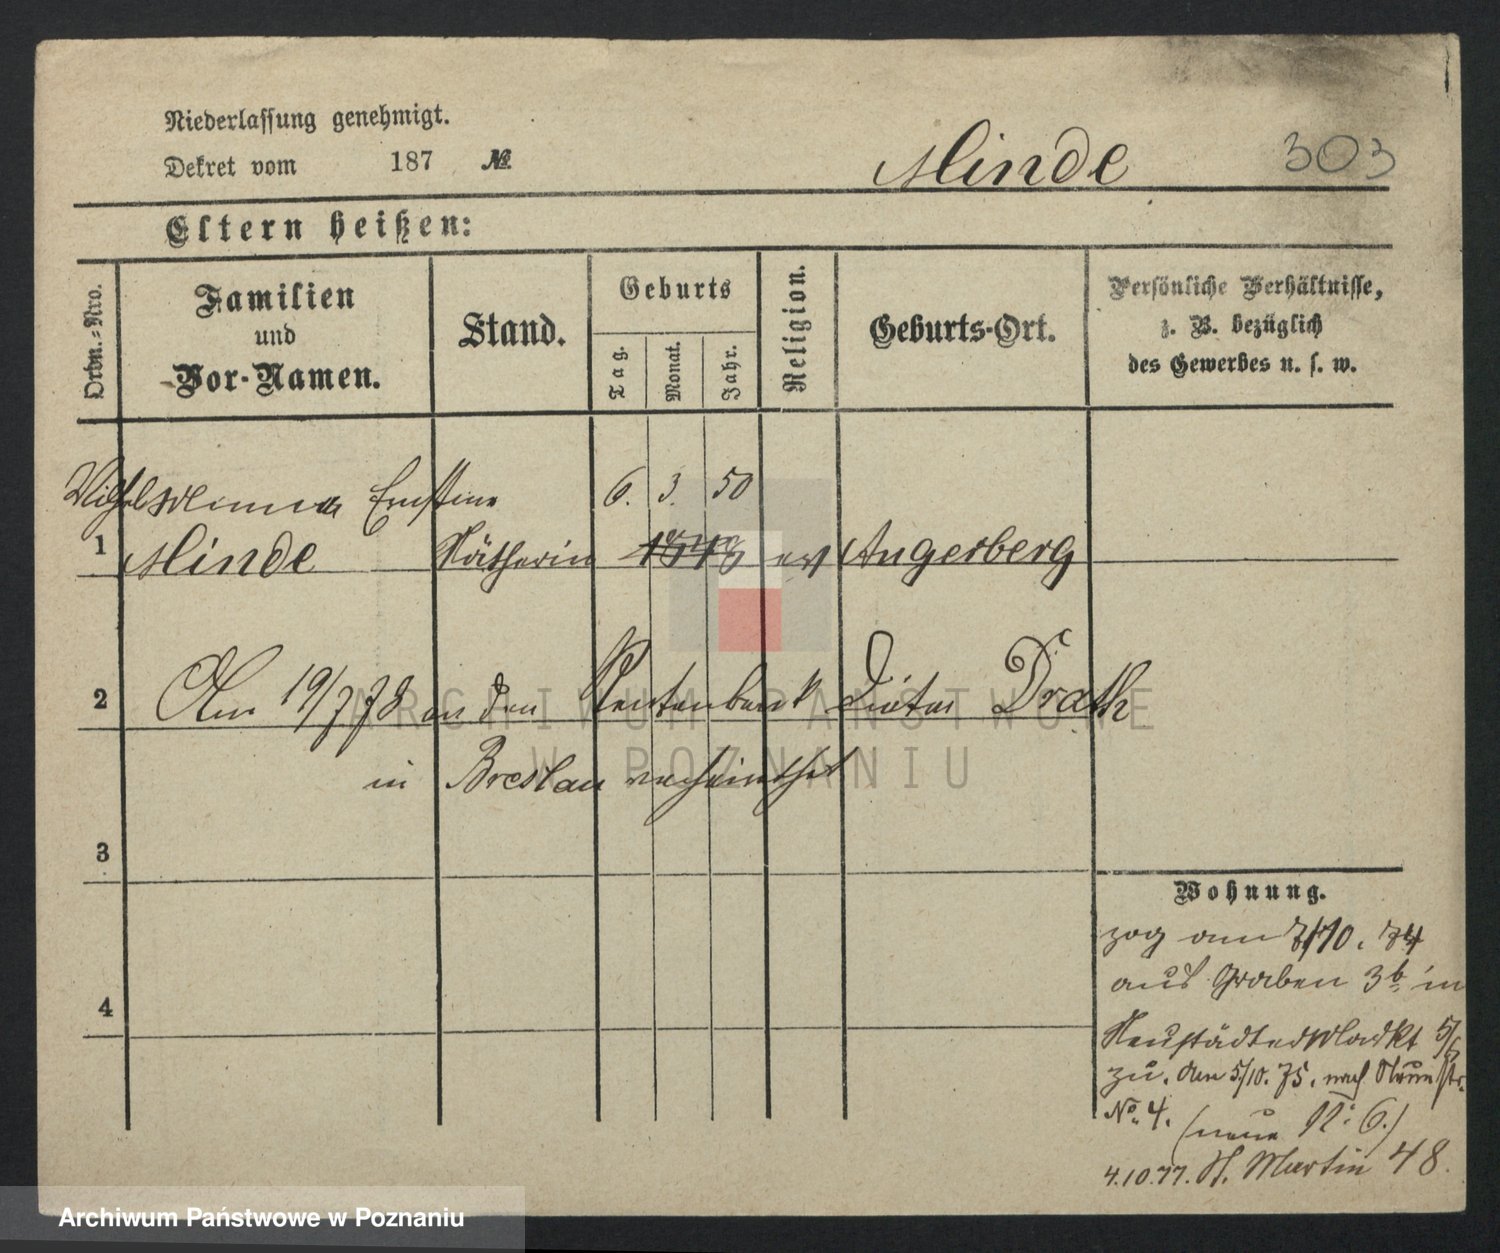 Niederlassung genehmigt.
Dekret vom 187 №
Minde 303
Eltern heißen:
Ordn.-Nro.
Familien
und
Vor-Namen.
Stand.
Geburts
Tag.
Monat.
Jahr.
Religion.
Geburts-Ort.
Persönliche Verhältnisse,
z. B. bezüglich
des Gewerbes u. s. w.
Wilhelmine Ernstine 6. 3. 50
1 Minde Nätherin 1848 ev Angerberg
2 Am 19/7 78 an den Rentenbank Diätar Drath
in Breslau verheirathet
3
4
Wohnung.
zog am 7/10. 74
aus Graben 3b in
Neustädter Markt 5/6
zu. Am 5/10. 75. nach
No. 4. (neue N: 6.)
4.10.77. St. Martin 48.
ARCHIWUM PAŃSTWOWE
W POZNANIU
Archiwum Państwowe w Poznaniu